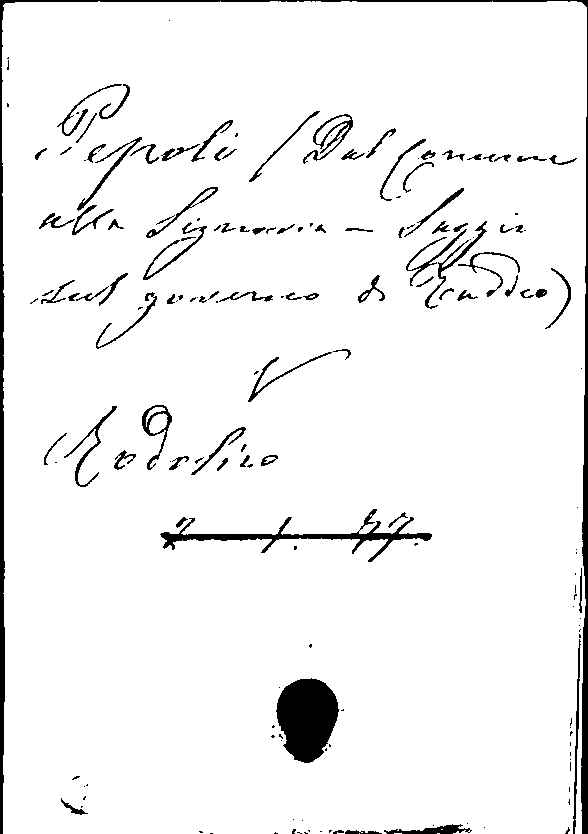 Pepoli (Dal Comune
alla Signoria - Saggio
sul governo di Taddeo)
V
Rodolico
7. 1. 77.